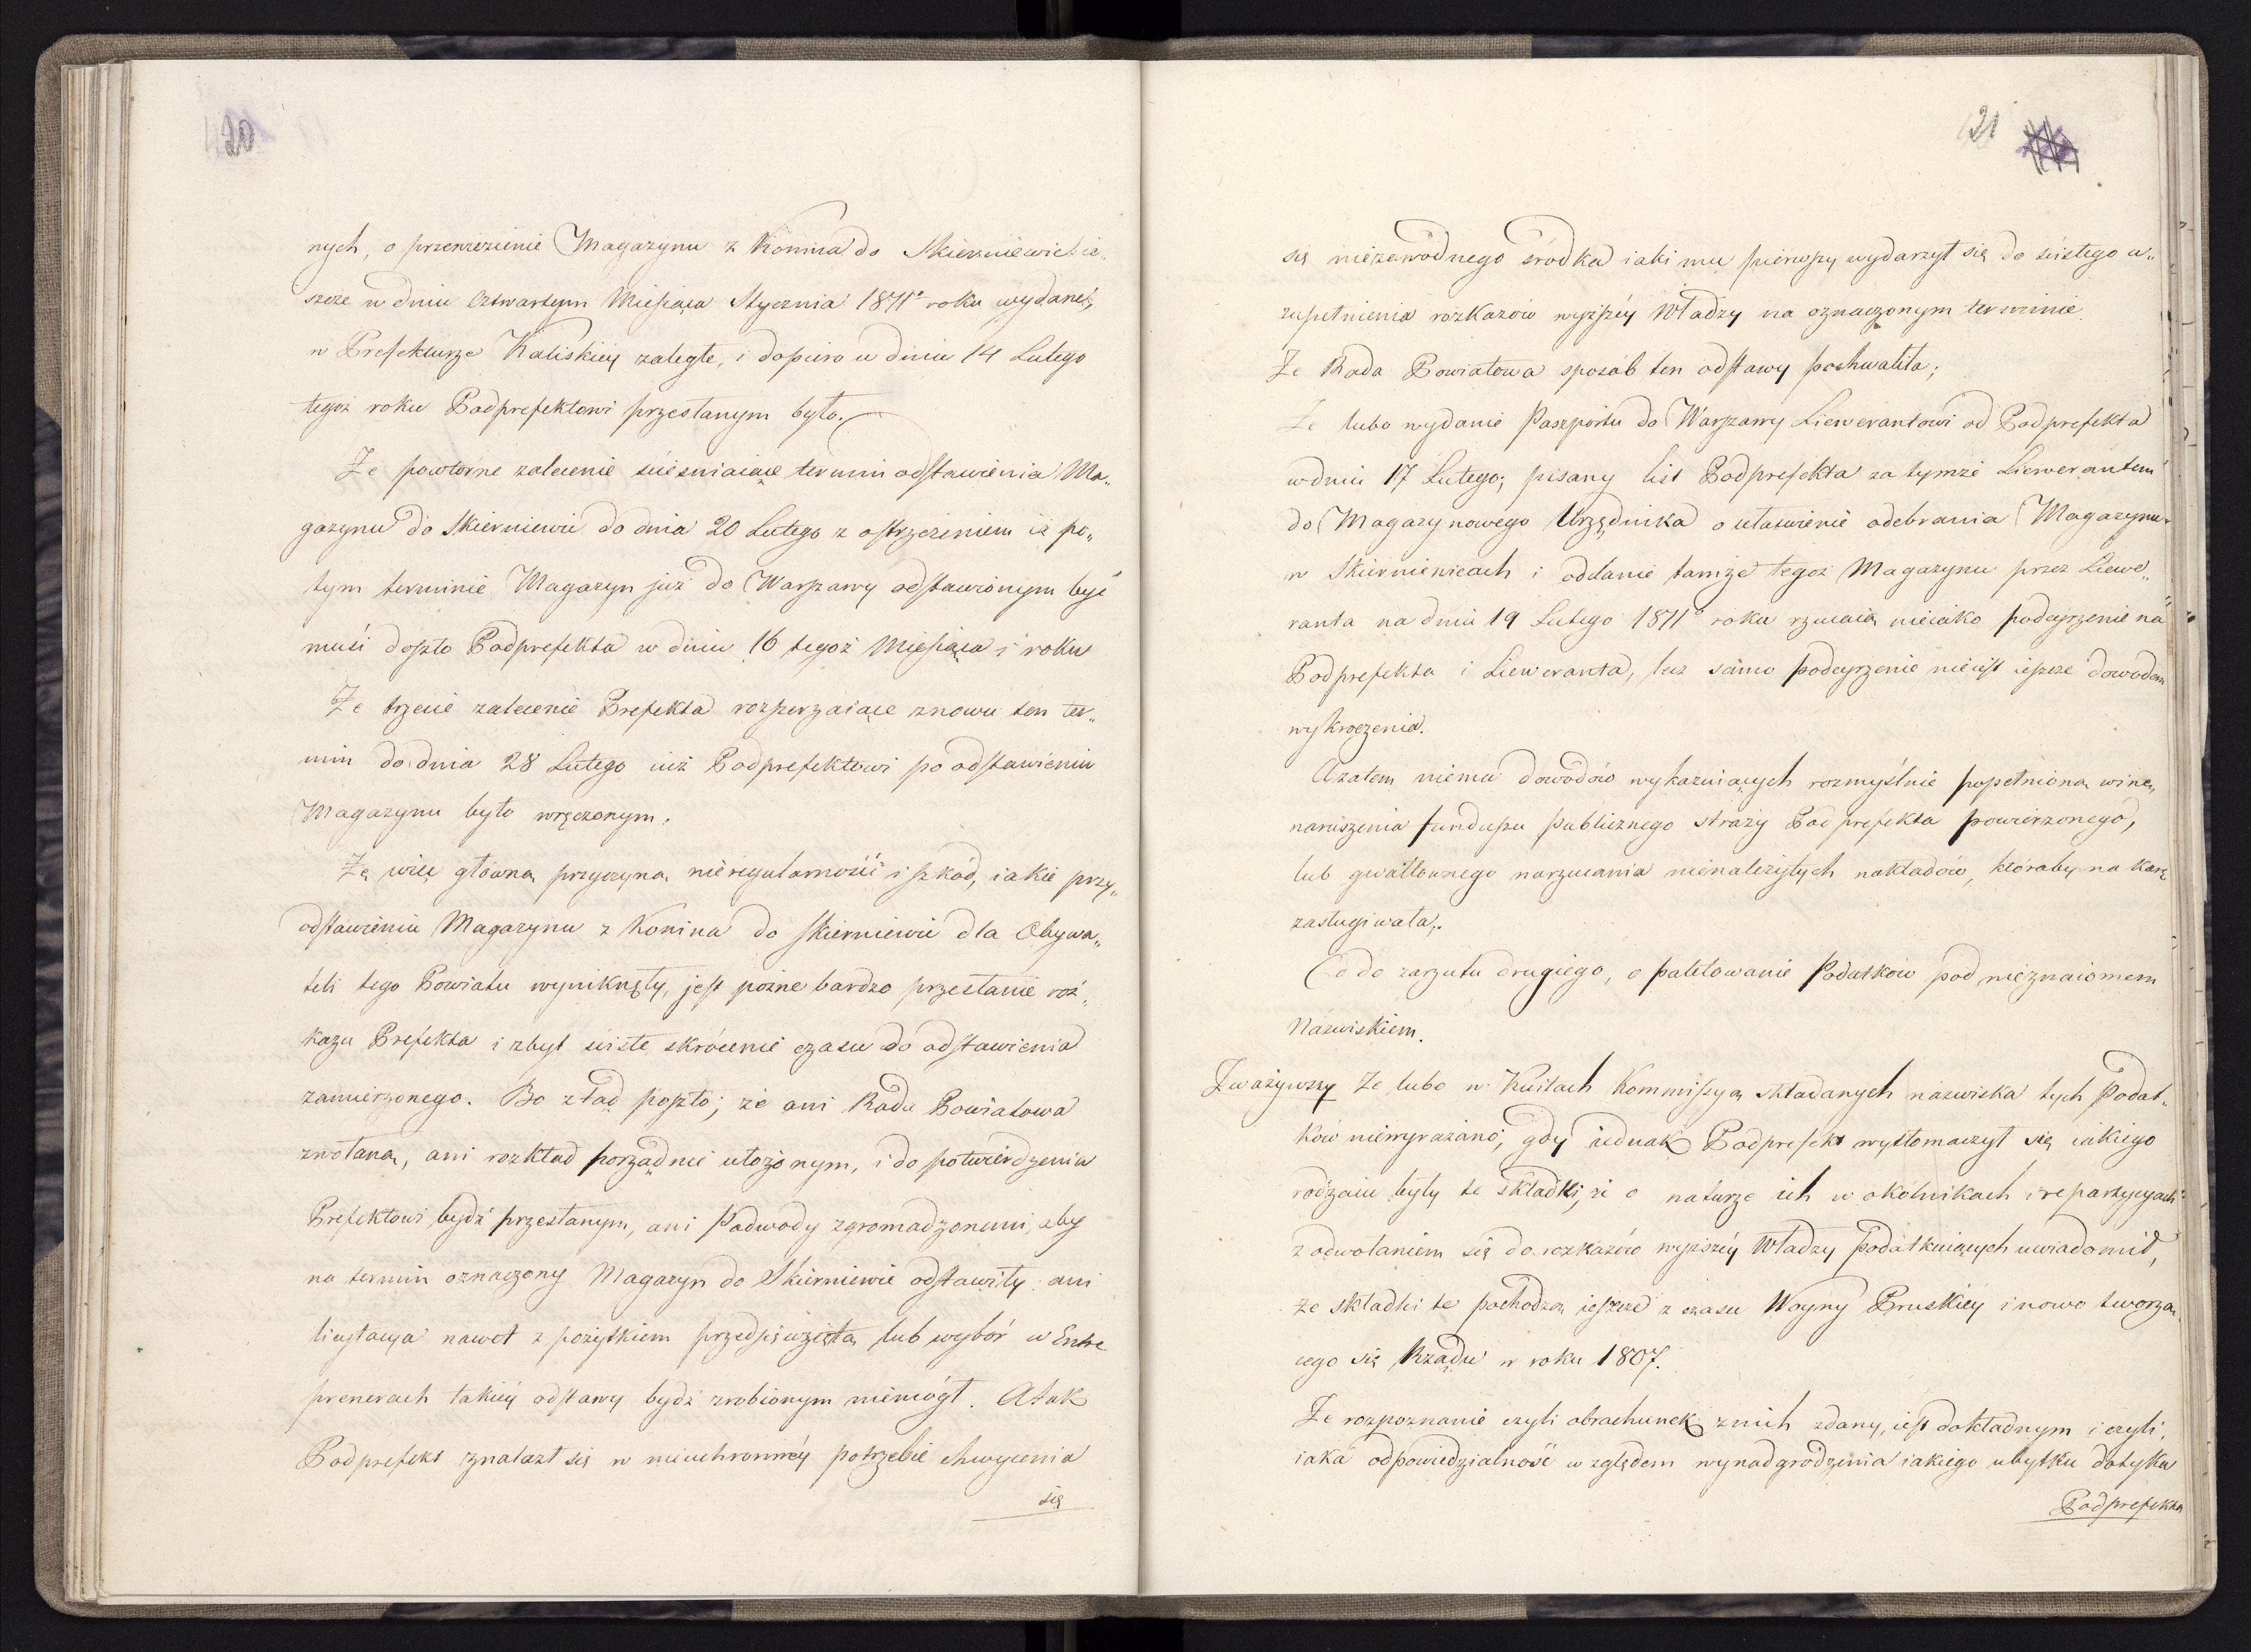 20
nych, o przeniezienie Magazynu z Konina do Skierniewic ie„
szcze w dniu Cztwartym Miesiąca Stycznia 1811º roku wydane,
w Prefekturze Kaliskiey zaległe, i dopiero w dniu 14 Lutego
tegoż roku Podprefektowi przesłanym było.
Że powtórne zalecenie ścieśniaiące termin odstawienia Ma„
gazynu do Skierniewic do dnia 20 Lutego z ostrzeżeniem iż po„
tym terminie Magazyn już do Warszawy odstawionym być
musi doszło Podprefekta w dniu 16 tegoż Miesiąca i roku
Że trzecie zalecenie Prefekta rozszerzaiące znowu ten ter„
min do dnia 28 Lutego iuż Podprefektowi po odstawieniu
Magazynu było wręczonym.
Że więc główną przyczyną nieregularności i szkód, iakie przy„
odstawieniu Magazynu z Konina do Skierniewic dla Obywa„
teli tego Powiatu wyniknęły, jest poźne bardzo przesłanie roz„
kazu Prefekta i zbyt ścisłe skrócenie czasu do odstawienia
zamierzonego. Bo ztąd poszło; że ani Rada Powiatowa
zwołaną, ani rozkład porządnie ułożonym, i do potwierdzenia
Prefektowi bydź przesłanym, ani Podwody zgromadzonemi, aby
na termin oznaczony Magazyn do Skierniewic odstawiły ani
licytacya nawet z pożytkiem przedsięwziętą lub wybór w Entre
prenerach takiey odstawy bydź zrobionym niemógł. A tak
Podprefekt znalazł się w nieuchronney potrzebie chwycenia
się
21
się niezawodnego środka iaki mu pierwszy wydarzył się do ścisłego u„
zupełnienia rozkazów wyższey Władzy na oznaczonym terminie.
Że Rada Powiatowa sposób ten odstawy pochwaliła;
Że lubo wydanie Paszportu do Warszawy Liewerantowi od Podprefekta
w dniu 17 Lutego; pisany list Podprefekta za tymże Liewerantem
do Magazynowego Urzędnika o ułatwienie odebrania Magazynu
w Skierniewicach i oddanie tamże tegoż Magazynu przez Liewe„
ranta na dniu 19 Lutego 1811º roku rzucaią nieiako podeyrzenie na
Podprefekta i Lieweranta, lecz samo podeyrzenie nieiest ieszcze dowodem
wykroczenia.
A zatem niema dowodów wykazuiących rozmyślnie popełnioną winę,
naruszenia funduszu publicznego straży Podprefekta powierzonego,
lub gwałtownego narzucania nienależytych nakładów, któraby na karę
zasługiwała.
Co do zarzutu drugiego, o paletowanie Podatków pod nieznaiomem
Nazwiskiem.
Zważywszy Że lubo w Kwitach Kommissyą składanych nazwiska tych Podat„
ków niewyrażano; gdy iednak Podprefekt wytłomaczył się iakiego
rodzaiu były te składki, że o naturze ich w okólnikach i repartycyach
z odwołaniem się do rozkazów wyższey Władzy podatkuiących uwiadomił,
że składki te pochodzą ieszcze z czasu Woyny Pruskiey i nowo tworzą„
cego się Rządu w roku 1807.
Że rozpoznanie czyli obrachunek z nich zdany, iest dokładnym i czyli,
iaka odpowiedzialność względem wynadgrodzenia iakiego ubytku dotyka
Podprefekta